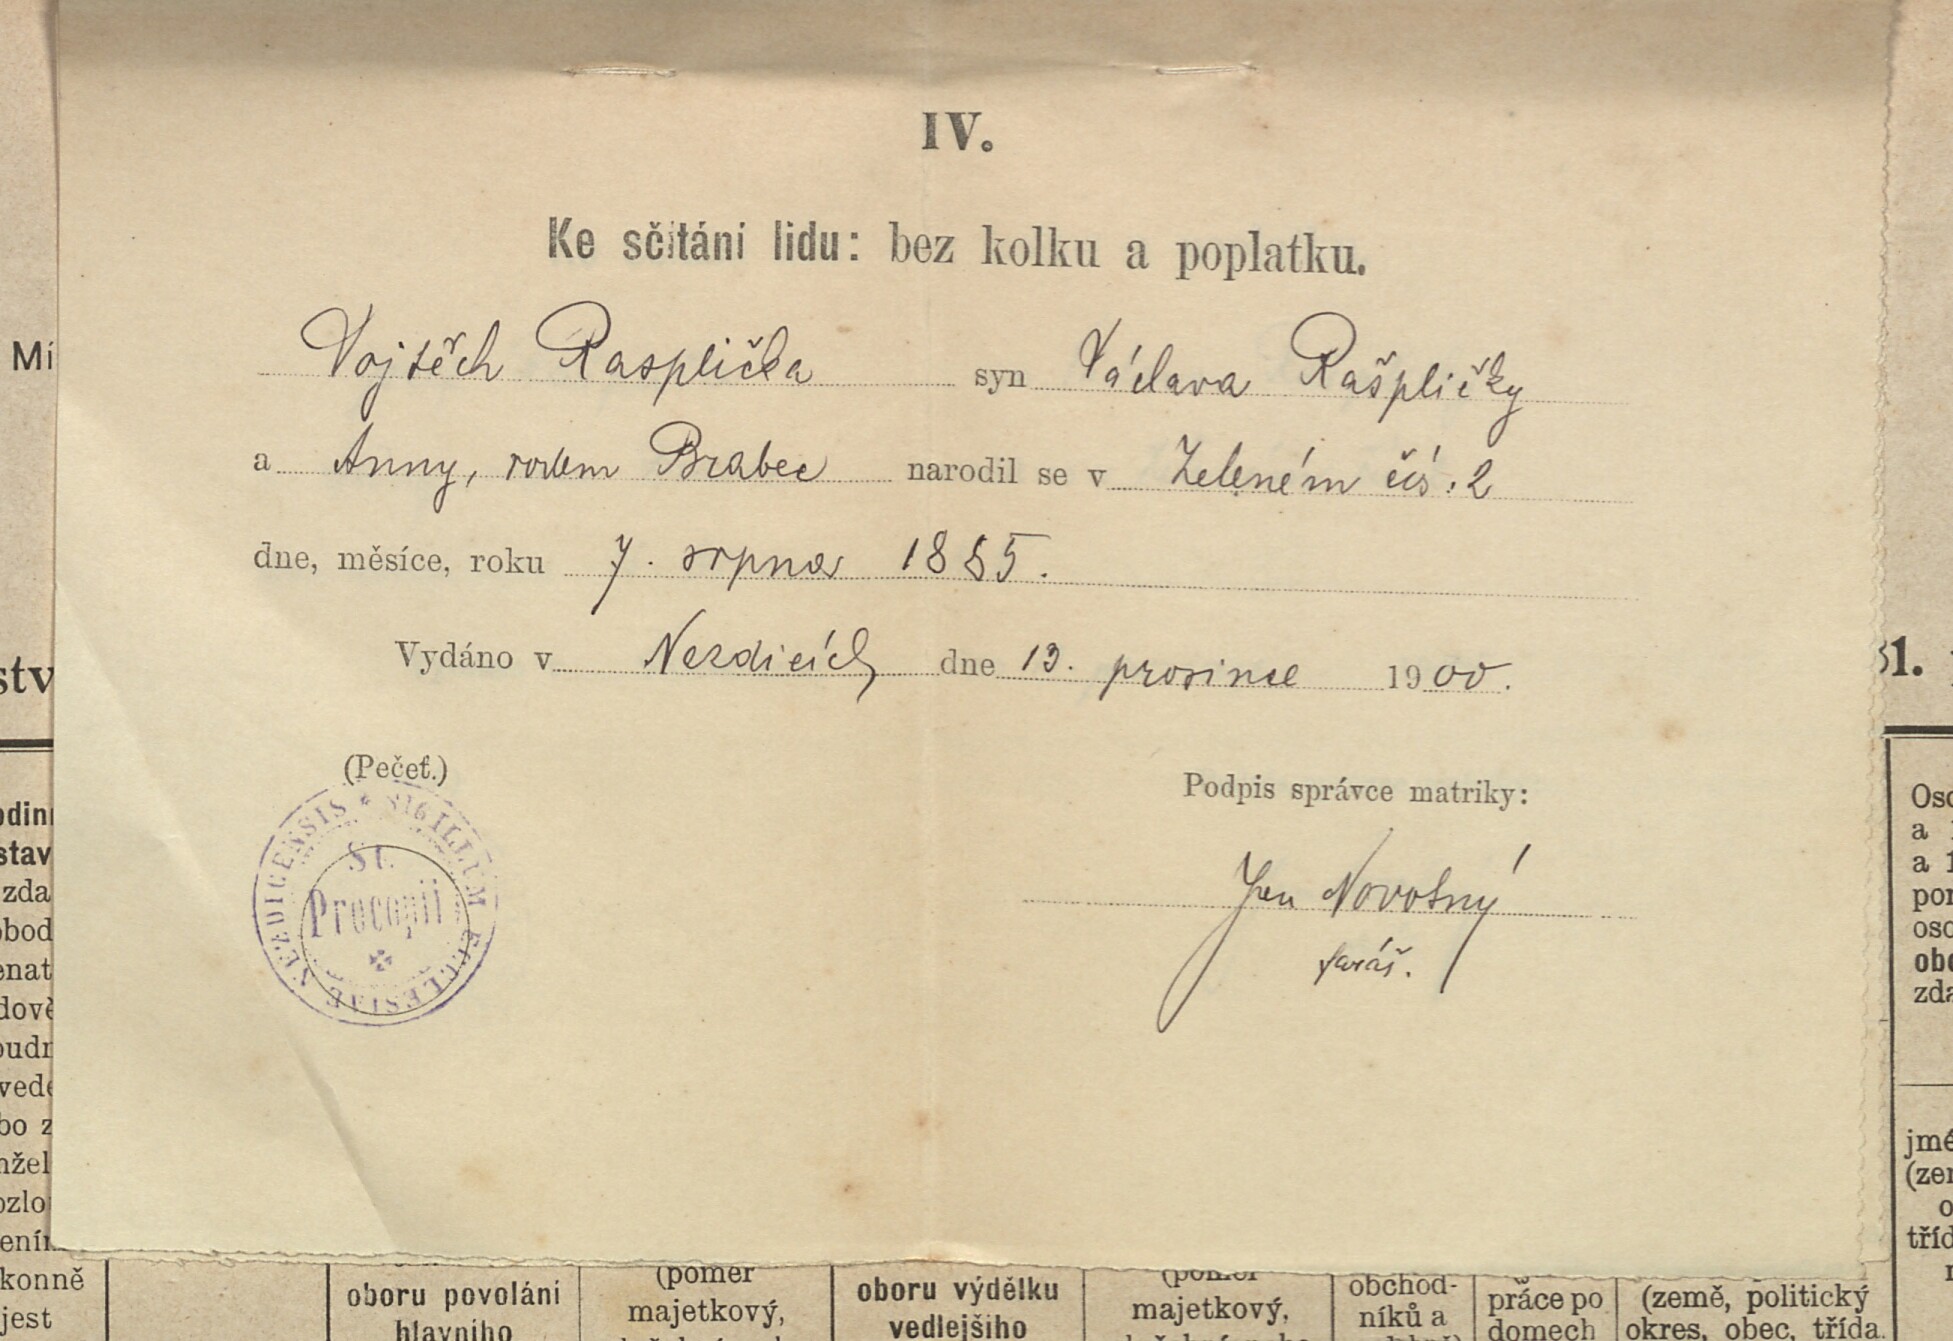 IV.
Ke sčítání lidu: bez kolku a poplatku.
Vojtěch Rasplička syn Václava Rašpličky
a Anny, rodem Brabec narodil se v Zeleném čís. 2
dne, měsíce, roku 7. srpna 1885.
Vydáno v Nezdicích dne 13. prosince 1900.
(Pečeť.)
SIGILLUM ECCLESIAE NEZDICENSIS *
St.
Procopii
Podpis správce matriky:
Jan Novotný
farář.
Mí
stv
31.
odinn
stav
zda
obod
enat
dově
oudn
vede
bo z
nžel
ozlo
ením
konně
jest
oboru povolání
hlavního
(poměr
majetkový,
oboru výdělku
vedlejšího
(poměr
majetkový,
obchod-
níků a
práce po
domech
(země, politický
okres, obec, třída
Oso
a
a 1
pon
oso
obc
zda
jmé
(zen
o
tříd